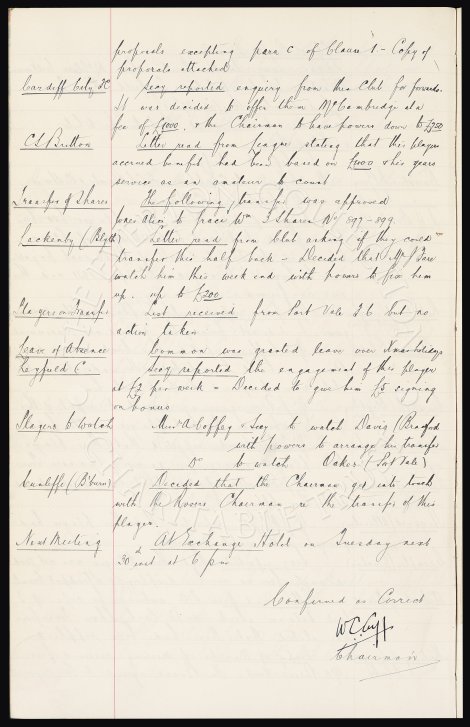 proposals excepting para C of Clause 1 - Copy of
proposals attached
Cardiff City FC Secy reported enquiry from this Club for forwards.
It was decided to offer them McCambridge at a
fee of £1000. & the Chairman to have powers down to £750
C S Britton Letter read from League stating that this players
accrued benefit had been based on £1000 & his years
service as an amateur to count
Transfer of Shares The following transfer was approved
Jones Alice to Grace Wm 3 Shares No 897-899
Lackenby (Blyth) Letter read from Club asking if they could
transfer this half back - Decided that Mr
watch him this week end with powers to fix him
up. up to £200
Players on Transfer List received from Port Vale F.C. but no
action taken
Leave of Absence Common was granted leave over Xmas holidays
Heyfield C Secy reported the engagement of this player
at £2 per week - Decided to give him £5 signing
on bonus
Players to Watch Messrs A Coffey & Secy to watch Davis (Bradford
with powers to arrange his transfer
Do to watch Oakes (Port Vale)
Cunliffe (B'burn) Decided that the Chairman get into touch
with the Rovers Chairman re the transfer of this
player.
Next Meeting At Exchange Hotel on Tuesday next
30 inst at 6 pm
Confirmed as Correct
W.C. Cuff
Chairman